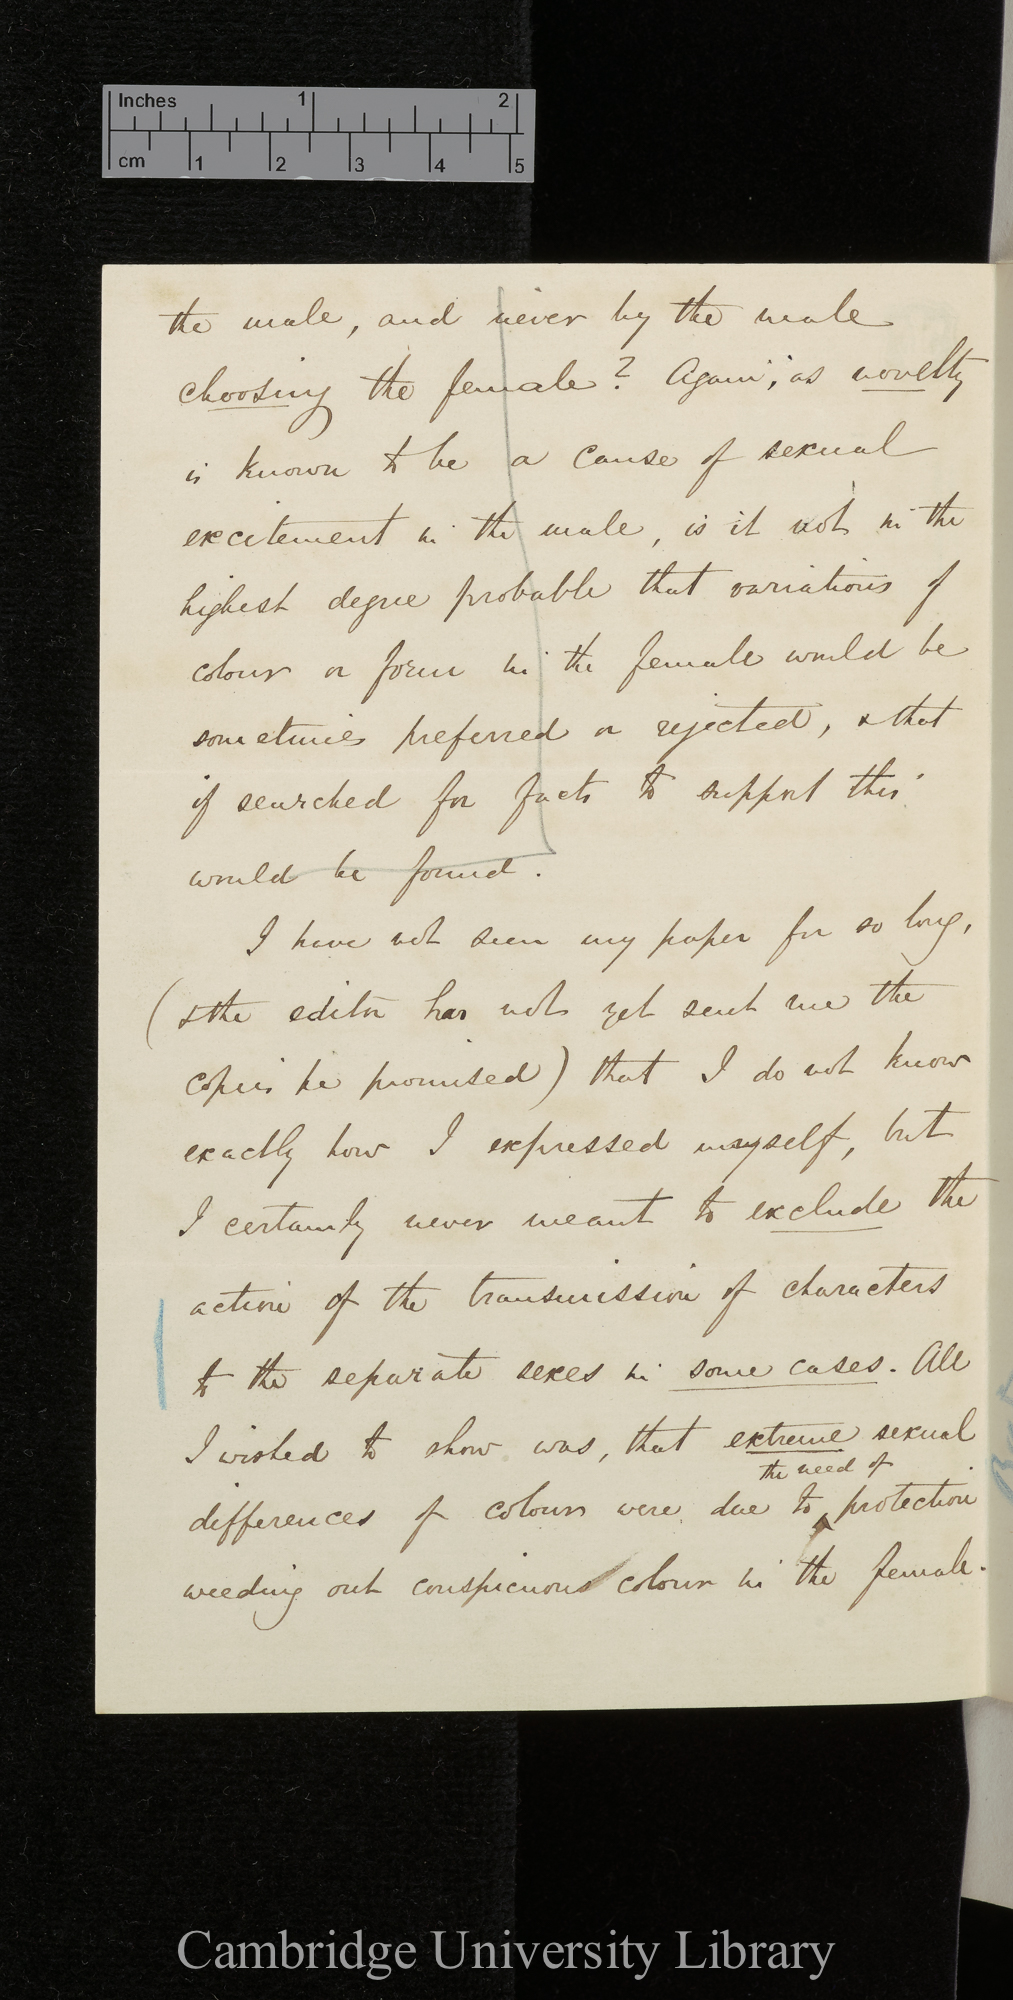 Inches 1 2
cm 1 2 3 4 5
the male, and never by the male
choosing the female? Again; as novelty
is known to be a cause of sexual
excitement in the male, is it not in the
highest degree probable that variations of
colour or form in the female would be
sometimes preferred or rejected, & that
if searched for facts to support this
would be found.
I have not seen my paper for so long,
(& the editor has not yet sent me the
copies he promised) that I do not know
exactly how I expressed myself, but
I certainly never meant to exclude the
action of the transmission of characters
to the separate sexes in some cases. All
I wished to show was, that extreme sexual
the need of
differences of colour were due to protection
weeding out conspicuous colour in the female.
Cambridge University Library